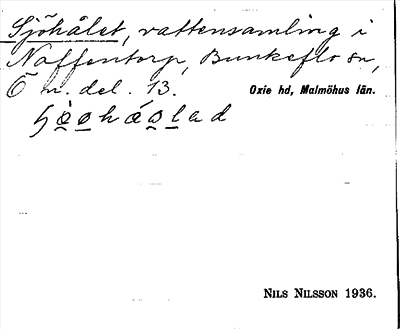 Sjöhålet, vattensamling i
Naffentorp, Bunkeflo sn,
Ö m. del. 13. Oxie hd, Malmöhus län.
NILS NILSSON 1936.